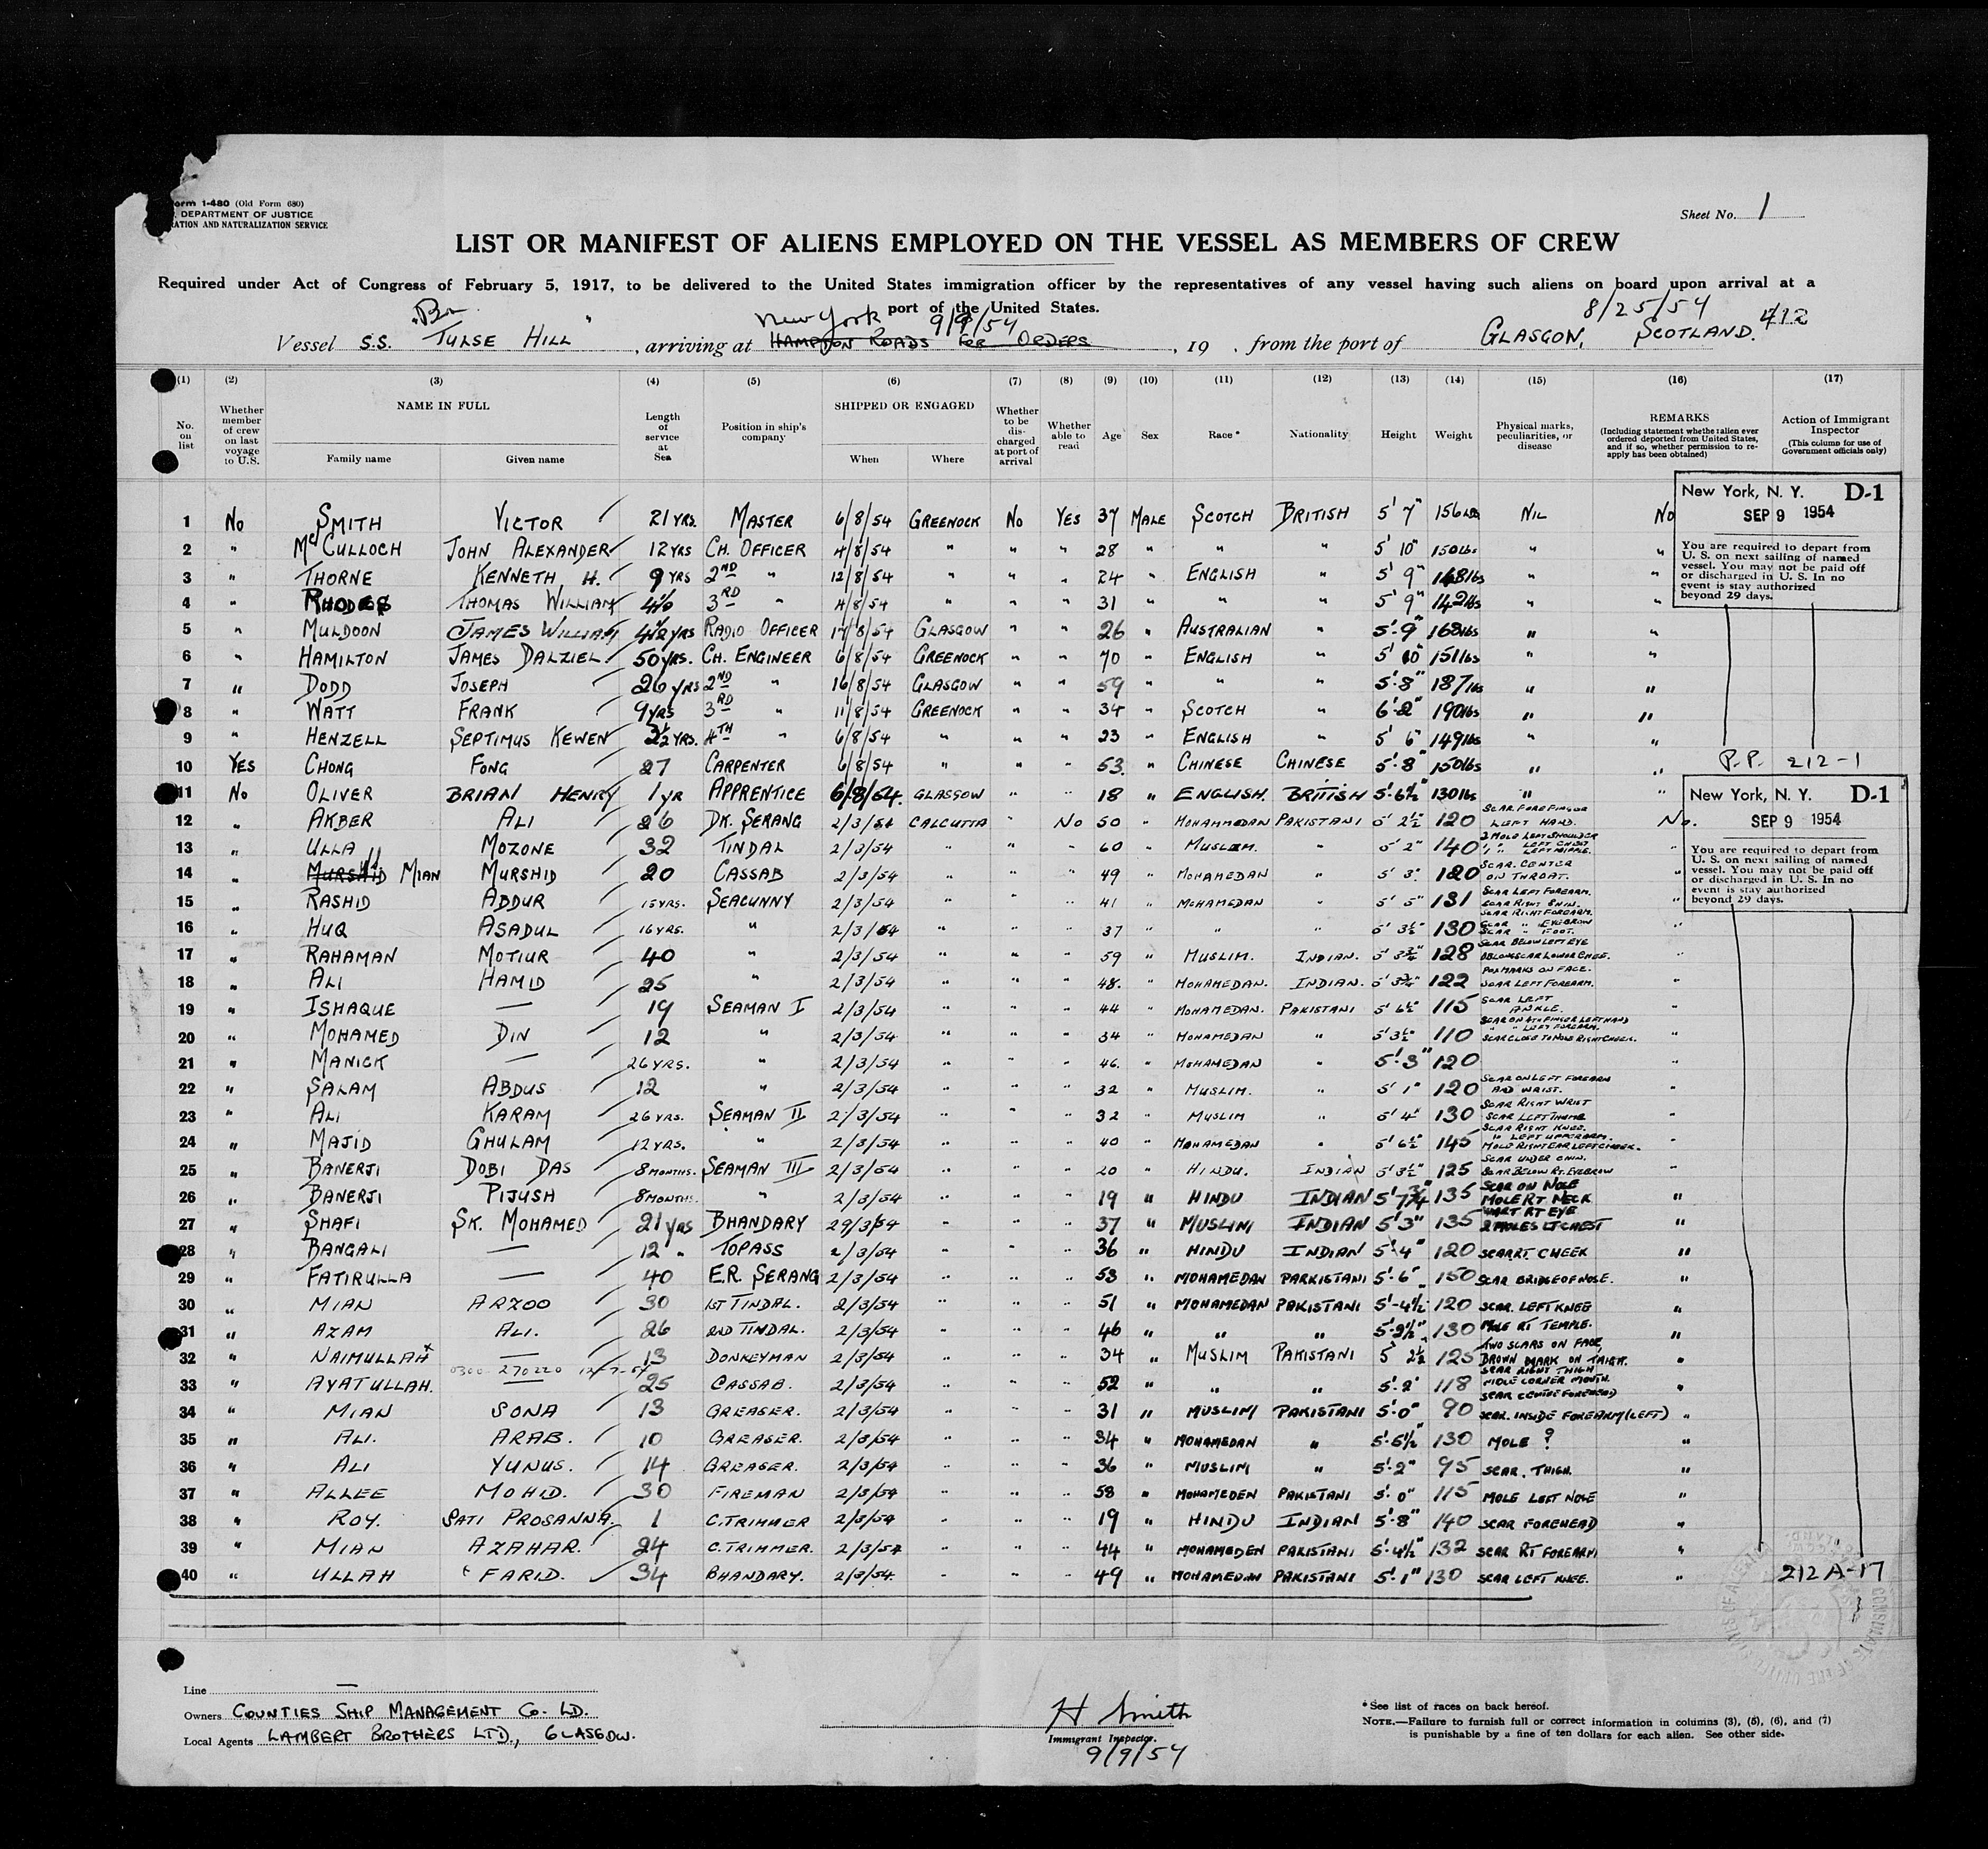 Form I-480 (Old Form 680)
DEPARTMENT OF JUSTICE
RATION AND NATURALIZATION SERVICE
Sheet No. 1
LIST OR MANIFEST OF ALIENS EMPLOYED ON THE VESSEL AS MEMBERS OF CREW
Required under Act of Congress of February 5, 1917, to be delivered to the United States immigration officer by the representatives of any vessel having such aliens on board upon arrival at a
port of the United States.
Br. New York 9/9/54 8/25/54 412
Vessel S.S. "TULSE HILL", arriving at HAMPTON ROADS FOR ORDERS, 19 . from the port of GLASGOW, SCOTLAND.
(1) (2) (3) (4) (5) (6) (7) (8) (9) (10) (11) (12) (13) (14) (15) (16) (17)
No. on list
Whether member of crew on last voyage to U.S.
NAME IN FULL
Family name Given name
Length of service at Sea
Position in ship's company
SHIPPED OR ENGAGED
When Where
Whether to be discharged at port of arrival
Whether able to read
Age Sex Race* Nationality Height Weight
Physical marks, peculiarities, or disease
REMARKS
(Including statement whether alien ever ordered deported from United States, and if so, whether permission to re-apply has been obtained)
Action of Immigrant Inspector
(This column for use of Government officials only)
1 No SMITH VICTOR 21 YRS. MASTER 6/8/54 GREENOCK No YES 37 MALE SCOTCH BRITISH 5' 7" 156 LBS NIL No
2 " McCULLOCH JOHN ALEXANDER 12 YRS CH. OFFICER 4/8/54 " " " 28 " " " 5' 10" 150 lbs " "
3 " THORNE KENNETH H. 9 YRS 2ND " 12/8/54 " " " 24 " ENGLISH " 5' 9" 168 lbs " "
4 " RHODES THOMAS WILLIAM 3RD " 4/8/54 " " " 31 " " " 5' 9" 142 lbs " "
5 " MULDOON JAMES WILLIAM 4½ YRS RADIO OFFICER 17/8/54 GLASGOW " " 26 " AUSTRALIAN " 5'-9" 168 lbs " "
6 " HAMILTON JAMES DALZIEL 50 YRS. CH. ENGINEER 6/8/54 GREENOCK " " 70 " ENGLISH " 5' 10" 151 lbs " "
7 " DODD JOSEPH 26 YRS 2ND " 16/8/54 GLASGOW " " 59 " " " 5'-8" 187 lbs " "
8 " WATT FRANK 9 YRS 3RD " 11/8/54 GREENOCK " " 34 " SCOTCH " 6'-2" 190 lbs " "
9 " HENZELL SEPTIMUS KEWEN 2½ YRS. 4TH " 6/8/54 " " " 23 " ENGLISH " 5' 6" 149 lbs " "
10 YES CHONG FONG 27 CARPENTER 6/8/54 " " " 53 " CHINESE CHINESE 5'-8" 150 lbs " "
11 No OLIVER BRIAN HENRY 1 YR APPRENTICE 6/8/54. GLASGOW " " 18 " ENGLISH. BRITISH 5'-6½" 130 lbs " "
12 " AKBER ALI 26 DK. SERANG 2/3/54 CALCUTTA " No 50 " MOHAMMEDAN PAKISTANI 5' 2½" 120 SCAR FOREFINGER LEFT HAND. No.
13 " ULLA MOZONE 32 TINDAL 2/3/54 " " " 60 " MUSLEM. " 5' 2" 140 2 MOLE LEFT SHOULDER 1 " LEFT CHEST LEFT NIPPLE. "
14 " MURSHID MIAN MURSHID 20 CASSAB 2/3/54 " " " 49 " MOHAMEDAN " 5' 3" 120 SCAR. CENTER ON THROAT. "
15 " RASHID ABDUR 15 YRS. SEACUNNY 2/3/54 " " " 41 " MOHAMEDAN " 5' 5" 131 SCAR LEFT FOREARM. SCAR RIGHT SHIN. "
16 " HUQ ASADUL 16 YRS. " 2/3/54 " " " 37 " " " 5' 3½" 130 SCAR RIGHT FOREARM. SCAR " EYEBROW SCAR " FOOT. "
17 " RAHAMAN MOTIUR 40 " 2/3/54 " " " 59 " MUSLIM. INDIAN. 5' 3¾" 128 SCAR BELOW LEFT EYE OBLONG SCAR LOWER CHEE. "
18 " ALI HAMID 25 " 2/3/54 " " " 48. " MOHAMEDAN. INDIAN. 5' 3¾" 122 POX MARKS ON FACE. SCAR LEFT FOREARM. "
19 " ISHAQUE — 19 SEAMAN I 2/3/54 " " " 44 " MOHAMEDAN. PAKISTANI 5' 6½" 115 SCAR LEFT ANKLE. "
20 " MOHAMED DIN 12 " 2/3/54 " " " 34 " MOHAMEDAN " 5' 3½" 110 SCAR ON 4TH FINGER LEFT HAND " " LEFT FOREARM. SCAR CLOSE TO NOSE RIGHT CHEEK. "
21 " MANICK — 26 YRS. " 2/3/54 " " " 46. " MOHAMEDAN " 5'-3" 120 "
22 " SALAM ABDUS 12 " 2/3/54 " " " 32 " MUSLIM. " 5' 1" 120 SCAR ON LEFT FOREARM AND WRIST. "
23 " ALI KARAM 26 YRS. SEAMAN II 2/3/54 " " " 32 " MUSLIM " 5' 4" 130 SCAR RIGHT WRIST SCAR LEFT THUMB "
24 " MAJID GHULAM 12 YRS. " 2/3/54 " " " 40 " MOHAMEDAN " 5' 6½" 145 SCAR RIGHT KNEE. " LEFT UPPERARM. MOLE RIGHT EAR LEFT CHEEK. "
25 " BANERJI DOBI DAS 8 MONTHS. SEAMAN III 2/3/54 " " " 20 " HINDU. INDIAN 5' 3½" 125 SCAR UNDER CHIN. SCAR BELOW RT. EYEBROW "
26 " BANERJI PIJUSH 8 MONTHS. " 2/3/54 " " " 19 " HINDU INDIAN 5'-7¾" 135 SCAR ON NOSE MOLE RT NECK "
27 " SHAFI SK. MOHAMED 21 yrs BHANDARY 29/3/54 " " " 37 " MUSLIM INDIAN 5'3" 135 WART RT EYE 2 MOLES LT CHEST "
28 " BANGALI — 12 " TOPASS 2/3/54 " " " 36 " HINDU INDIAN 5'-4" 120 SCAR RT. CHEEK "
29 " FATIRULLA — 40 E.R. SERANG 2/3/54 " " " 53 " MOHAMEDAN PARKISTANI 5'-6" 150 SCAR BRIDGE OF NOSE. "
30 " MIAN ARZOO 30 1ST TINDAL. 2/3/54 " " " 51 " MOHAMEDAN PAKISTANI 5'-4½" 120 SCAR. LEFT KNEE "
31 " AZAM ALI. 26 2ND TINDAL. 2/3/54 " " " 46 " " " 5'-2½" 130 MOLE RT TEMPLE. "
32 " NAIMULLAH — 13 DONKEYMAN 2/3/54 " " " 34 " MUSLIM PAKISTANI 5' 2½ 125 TWO SCARS ON FACE, BROWN MARK ON THIGH. "
0300 270220
33 " AYATULLAH. — 25 CASSAB. 2/3/54 " " " 52 " " " 5'-2' 118 SCAR RIGHT THIGH MOLE CORNER MOUTH. SCAR CENTRE FOREHEAD "
34 " MIAN SONA 13 GREASER. 2/3/54 " " " 31 " MUSLIM PAKISTANI 5'-0" 90 SCAR. INSIDE FOREARM (LEFT) "
35 " ALI. ARAB. 10 GREASER. 2/3/54 " " " 34 " MOHAMEDAN " 5'-5½" 130 MOLE ? "
36 " ALI YUNUS. 14 GREASER. 2/3/54 " " " 36 " MUSLIM " 5'-2" 95 SCAR. THIGH. "
37 " ALLEE MOHID. 30 FIREMAN 2/3/54 " " " 58 " MOHAMEDEN PAKISTANI 5'-0" 115 MOLE LEFT NOSE "
38 " ROY. SATI PROSANNA. 1 C.TRIMMER 2/3/54 " " " 19 " HINDU INDIAN 5'-8" 140 SCAR FOREHEAD "
39 " MIAN AZAHAR. 24 C.TRIMMER. 2/3/54 " " " 44 " MOHAMEDEN PAKISTANI 5'-4½" 132 SCAR RT FOREARM "
40 " ULLAH FARID. 34 BHANDARY. 2/3/54. " " " 49 " MOHAMEDAN PAKISTANI 5'-1" 130 SCAR LEFT KNEE. "
New York, N. Y. D-1
SEP 9 1954
You are required to depart from
U. S. on next sailing of named
vessel. You may not be paid off
or discharged in U. S. In no
event is stay authorized
beyond 29 days.
P.P. 212-1
New York, N. Y. D-1
SEP 9 1954
You are required to depart from
U. S. on next sailing of named
vessel. You may not be paid off
or discharged in U. S. In no
event is stay authorized
beyond 29 days.
212 A-17
Line —
Owners COUNTIES SHIP MANAGEMENT Co. LD.
Local Agents LAMBERT BROTHERS LTD., GLASGOW.
H Smith
Immigrant Inspector.
9/9/54
*See list of races on back hereof.
NOTE.—Failure to furnish full or correct information in columns (3), (5), (6), and (7)
is punishable by a fine of ten dollars for each alien. See other side.